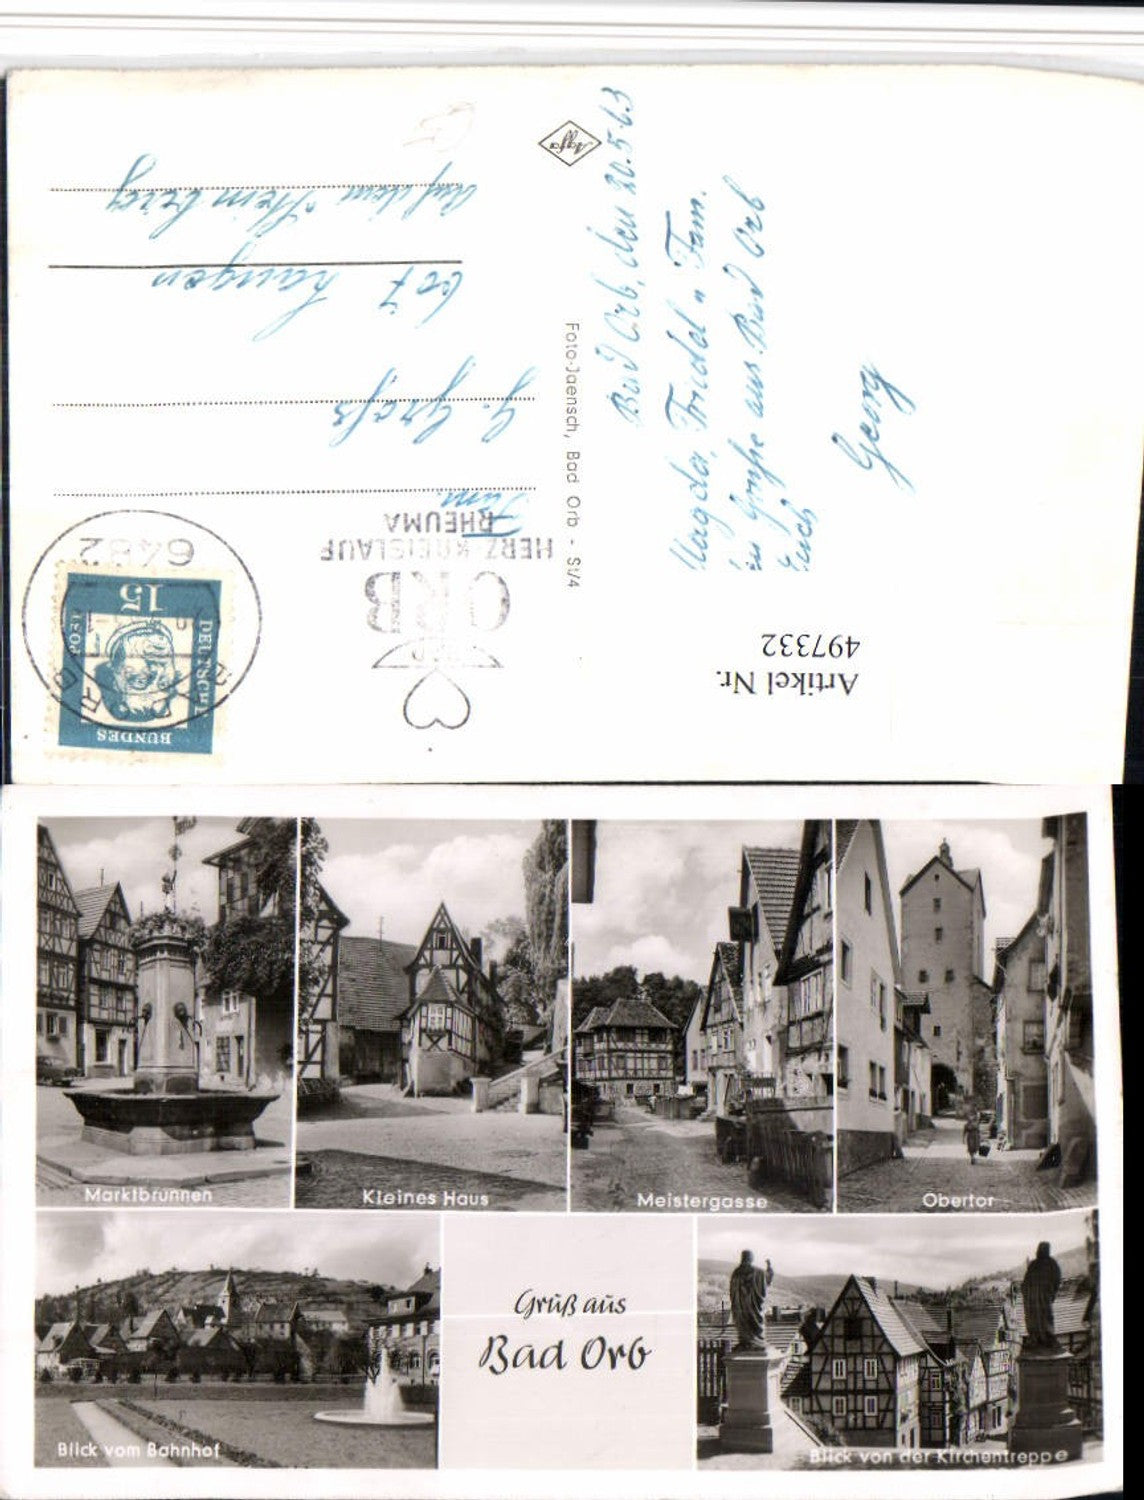 Bad Orb, den 20.5.63
Magda, Friedel u Fam.
Grüße aus Bad Orb
Euch
Georg
Agfa
Foto-Jaensch, Bad Orb - St/4
Artikel Nr.
497332
6482
BAD
ORB
HERZ-KREISLAUF
RHEUMA
15
DEUTSCHE
BUNDES
Fam.
G. Groß
607 Langen
Auf dem Steinberg
Marktbrunnen
Kleines Haus
Meistergasse
Obertor
Blick vom Bahnhof
Gruß aus
Bad Orb
Blick von der Kirchentreppe